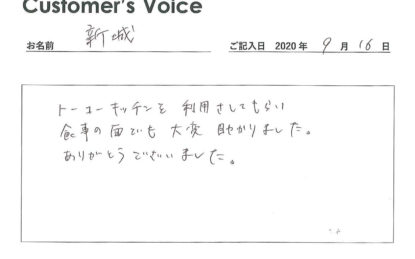 Customer's Voice
お名前 新城 ご記入日 2020 年 9 月 16 日
トーコーキッチンを 利用さしてもらい
食事の面でも 大変 助かりました。
ありがとうございいました。